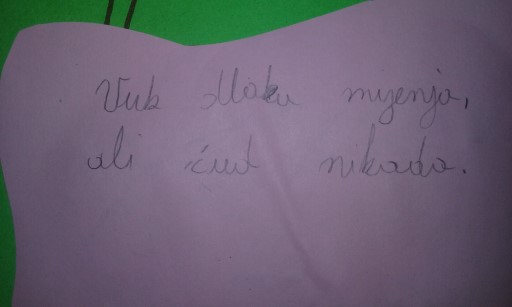 Vuk dlaku mijenja,
ali ćud nikada.